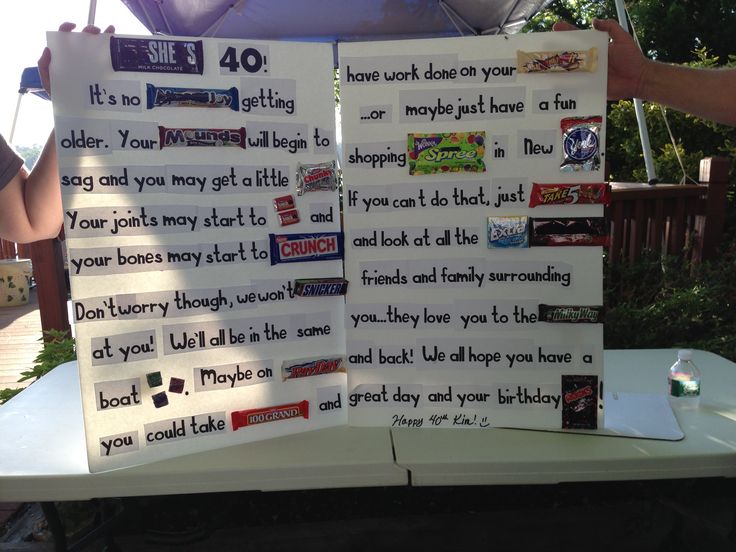 SHE'S 40!
MILK CHOCOLATE
It's no getting
older. Your Mounds will begin to
sag and you may get a little Chunky
Your joints may start to and
your bones may start to CRUNCH
Don't worry though, we won't SNICKER
at you! We'll all be in the same
boat . Maybe on PAYDAY
you could take 100 GRAND and
have work done on your
...or maybe just have a fun
shopping WONKA Spree in New York
If you can't do that, just TAKE 5
and look at all the
friends and family surrounding
you...they love you to the Milky Way
and back! We all hope you have a
great day and your birthday .
Happy 40th Kim!